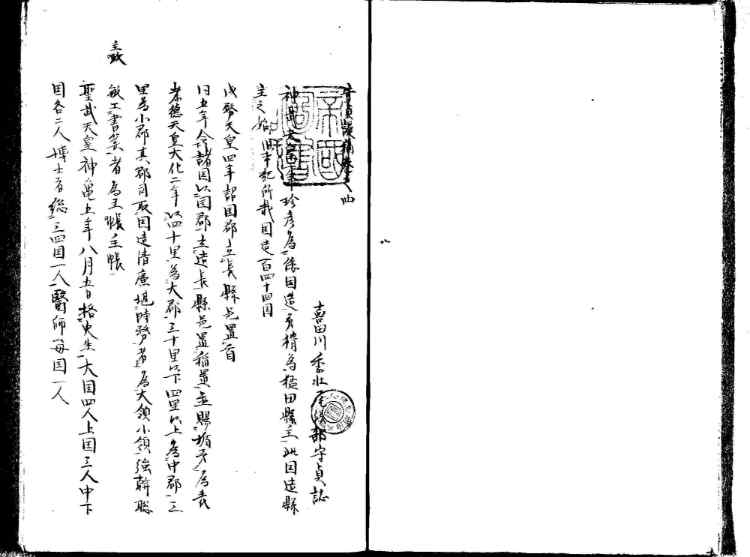 喜田川季荘尾張部守貞誌
神武天皇 年珍彦為倭国造 猾為猛田縣主此国造縣
主之始 旧事紀所載国造百四十四国
成務天皇四年詔国郡立長縣邑置首
同五年令諸国以国郡立造長縣邑置稲置並賜楯矛為表
孝徳天皇大化二年以四十里為大郡三十里以下四里以上為中郡三
里為小郡其郡司取国造清廉堪時務者為大領小領強幹聡
敏工書算者為主帳主帳
主政
聖武天皇神亀五年八月五日格史生大国四人上国三人中下
国各二人博士者総三四国一人醫師毎国一人